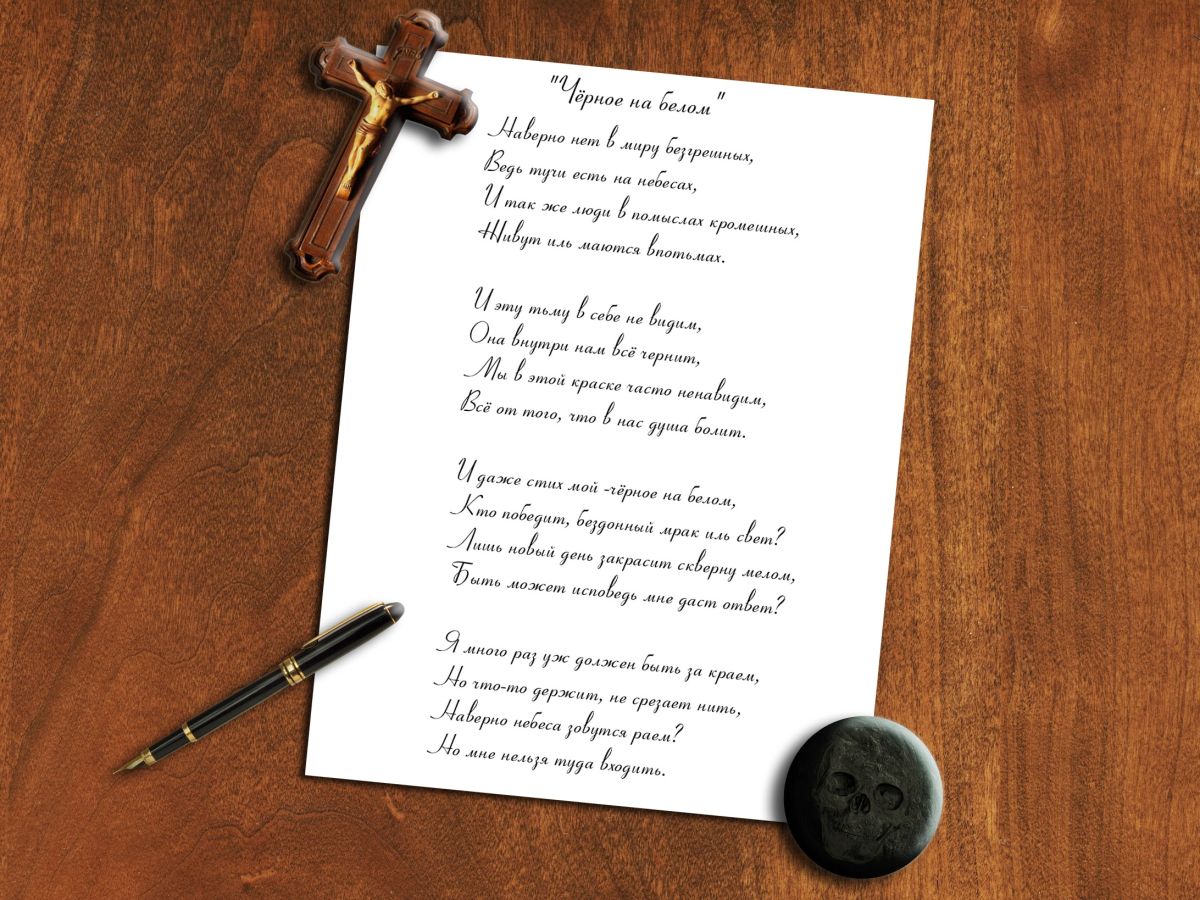 "Чёрное на белом"
Наверно нет в миру безгрешных,
Ведь тучи есть на небесах,
И так же люди в помыслах кромешных,
Живут иль маются впотьмах.
И эту тьму в себе не видим,
Она внутри нам всё чернит,
Мы в этой краске часто ненавидим,
Всё от того, что в нас душа болит.
И даже стих мой -чёрное на белом,
Кто победит, бездонный мрак иль свет?
Лишь новый день закрасит скверну мелом,
Быть может исповедь мне даст ответ?
Я много раз уж должен быть за краем,
Но что-то держит, не срезает нить,
Наверно небеса зовутся раем?
Но мне нельзя туда входить.